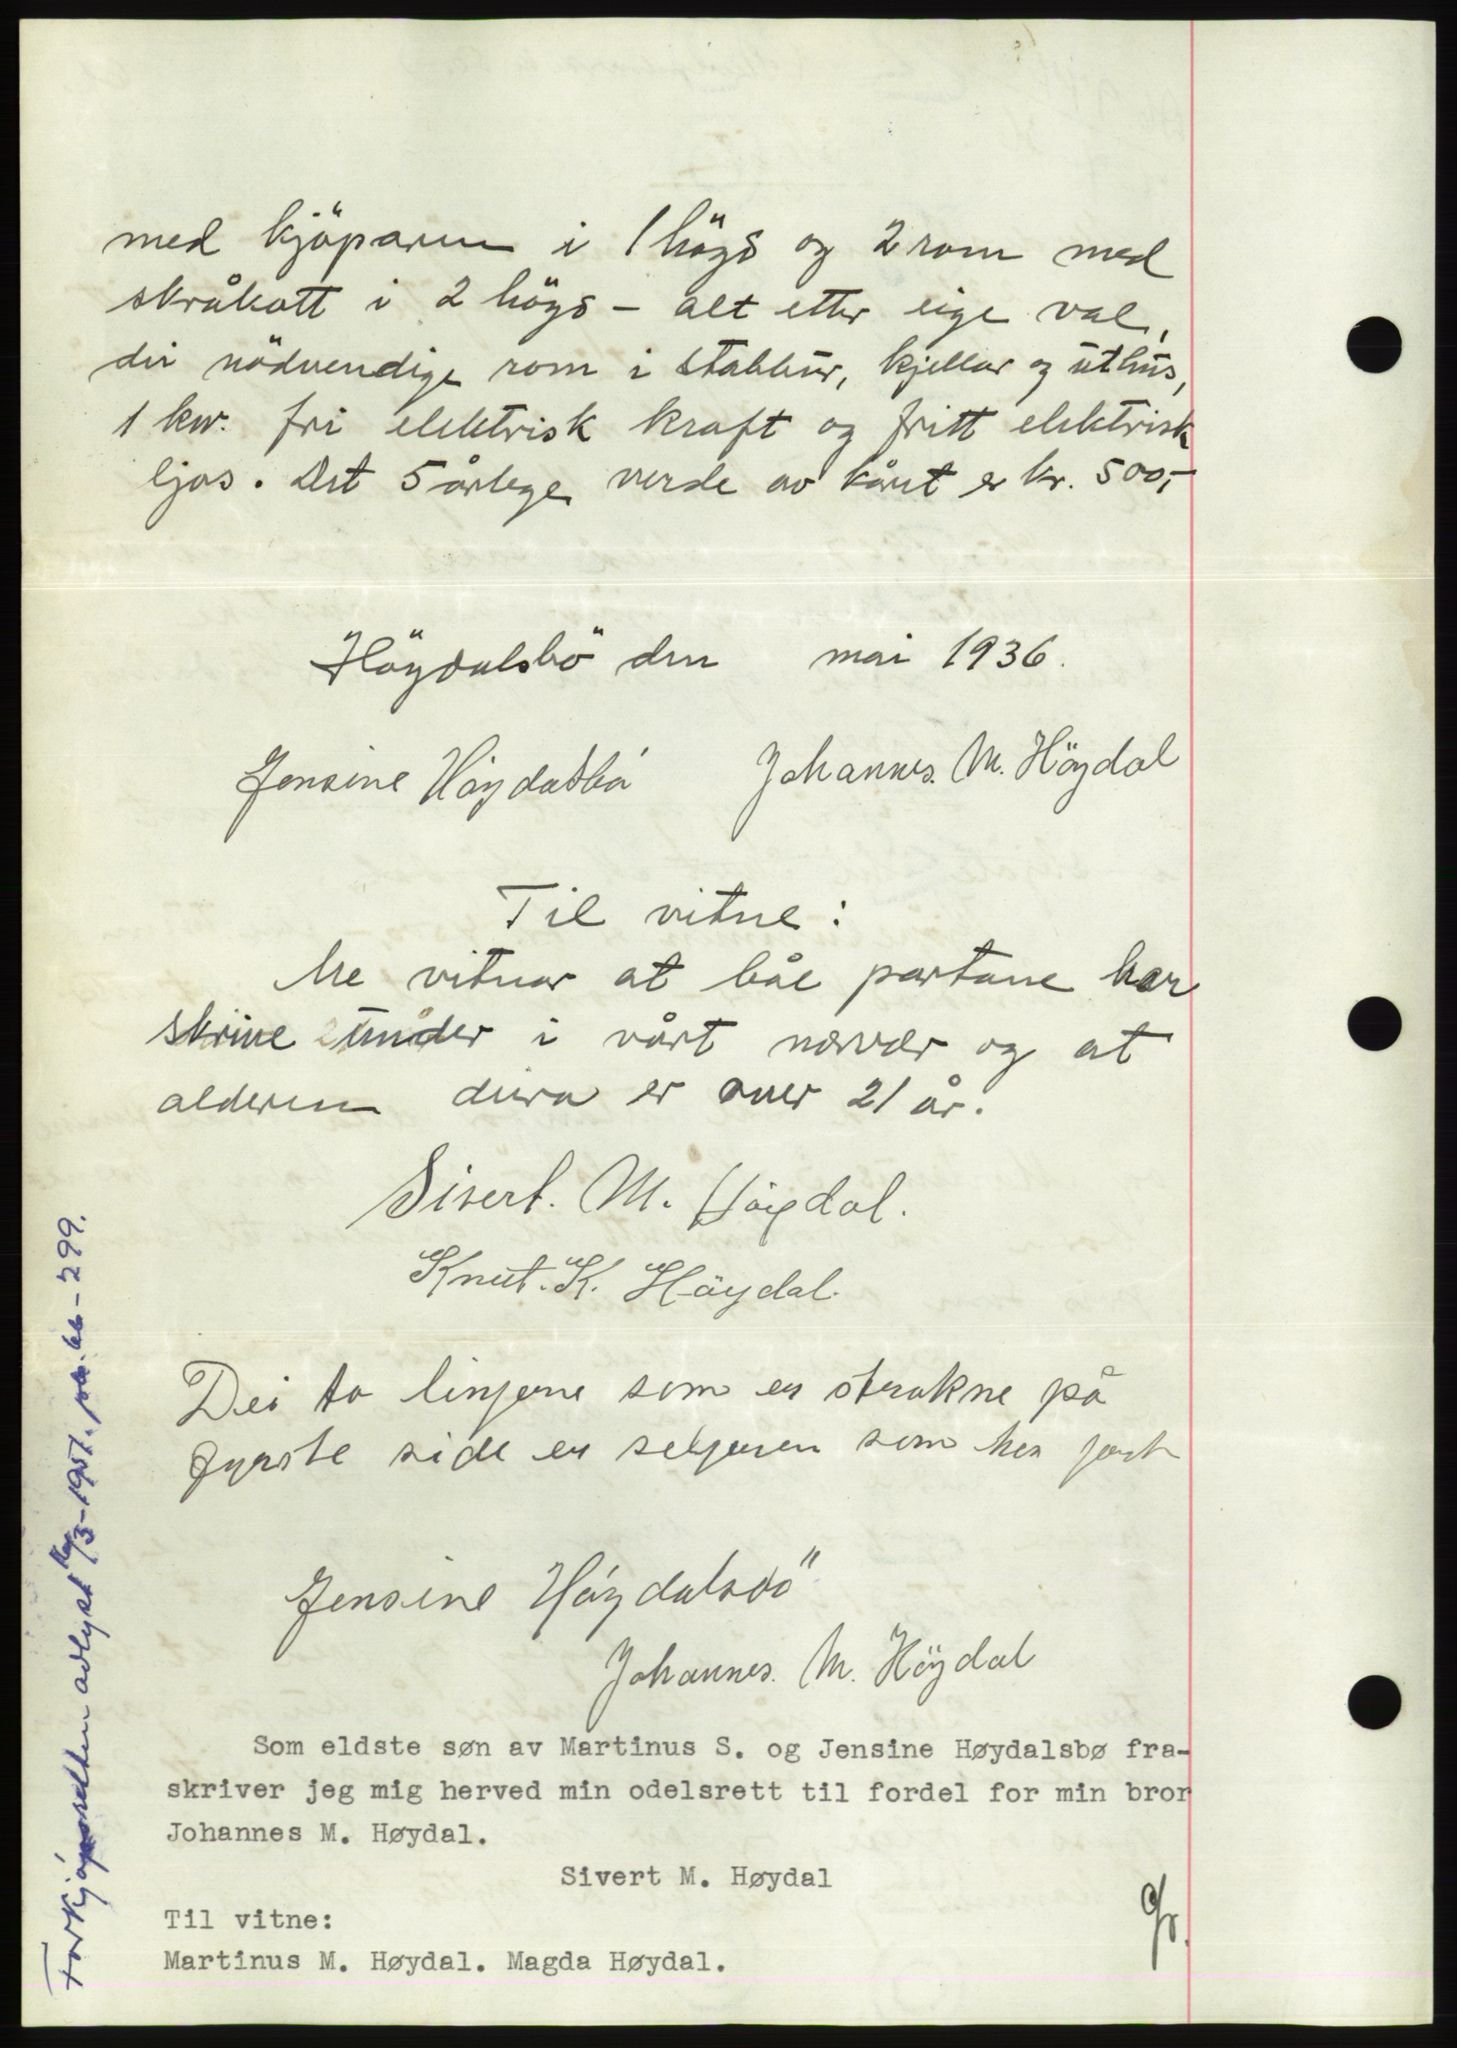 med kjöparen i 1 högd og 2 rom med
skråkott i 2 högd - alt etter eige val,
dei nödvendige rom i stabbur, kjellar og uthus,
1 kw. fri elektrisk kraft og fritt elektrisk
ljos. Det 5 årlege verde av kåret er kr. 500,-
Höydalsbö den mai 1936.
Jensine Höydalsbö Johannes. M. Höydal
Til vitne:
Me vitnar at båe partane har
skrive under i vårt nærvær og at
alderen deira er over 21 år.
Sivert. M. Höydal.
Knut. K. Höydal.
Dei to linjene som er strokne på
fyrste side er seljaren som her
Jensine Höydalsbö
Johannes. M. Höydal
Som eldste søn av Martinus S. og Jensine Høydalsbø fra-
skriver jeg mig herved min odelsrett til fordel for min bror
Johannes M. Høydal.
Sivert M. Høydal
Til vitne:
Martinus M. Høydal. Magda Høydal.
Forkjøpsretten avlyst /3-1951. 66-299.